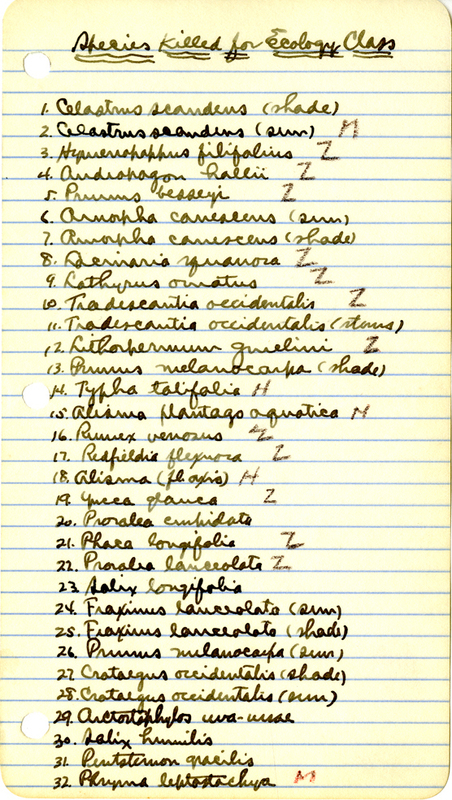 Species Killed for Ecology Class
1. Celastrus scandens (shade)
2. Celastrus scandens (sun) M
3. Hymenopappus filifolius Z
4. Andropogon hallii Z
5. Prunus besseyi Z
6. Amorpha canescens (sun)
7. Amorpha canescens (shade)
8. Lacinaria squarosa Z
9. Lathyrus ornatus Z
10. Tradescantia occidentalis Z
11. Tradescantia occidentalis (stems)
12. Lithospermum gmelini Z
13. Prunus melanocarpa (shade)
14. Typha latifolia H
15. Alisma plantago aquatica M
16. Rumex venosus Z
17. Redfieldia flexuosa Z
18. Alisma H
19. Yucca glauca Z
20. Psoralea cuspidata
21. Phaca longifolia Z
22. Psoralea lanceolata Z
23. Salix longifolia
24. Fraxinus lanceolata (sun)
25. Fraxinus lanceolata (shade)
26. Prunus melanocarpa (sun)
27. Crataegus occidentalis (shade)
28. Crataegus occidentalis (sun)
29. Arctostaphylos uva-ursae
30. Salix humilis
31. Pentstemon gracilis
32. Phryma leptostachya M